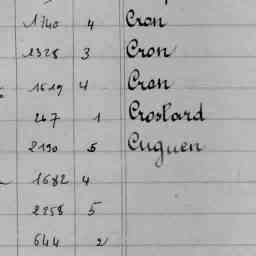 1740 4 Cron
2328 3 Cron
1619 4 Cron
247 1 Crostard
2190 5 Cuguen
1682 4
2258 5
644 2